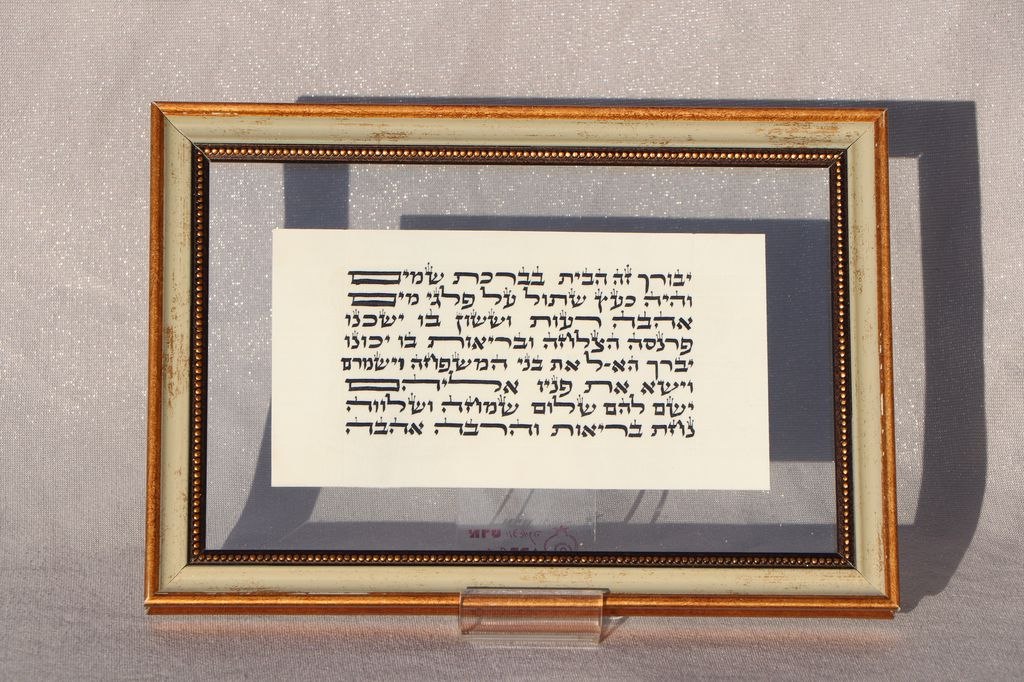 יבורך זה הבית בברכת שמים
והיה כעץ שתול על פלגי מים
אהבה רעות וששון בו ישכנו
פרנסה הצלחה ובריאות בו יכונו
יברך האיל את בני המשפחה וישמרם
וישא את פניו אליהם
ישם להם שלום שמחה ושלווה
נחת בריאות והרבה אהבה